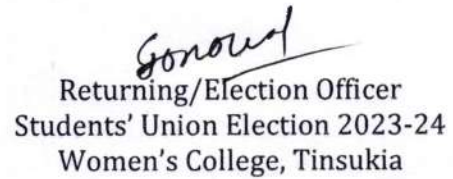 Sonowal
Returning/Election Officer
Students' Union Election 2023-24
Women's College, Tinsukia